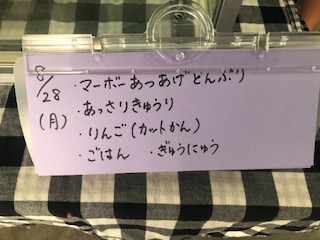 8/28
(月)
・マーボーあつあげどんぶり
・あっさりきゅうり
・りんご(カットかん)
・ごはん ・ぎゅうにゅう